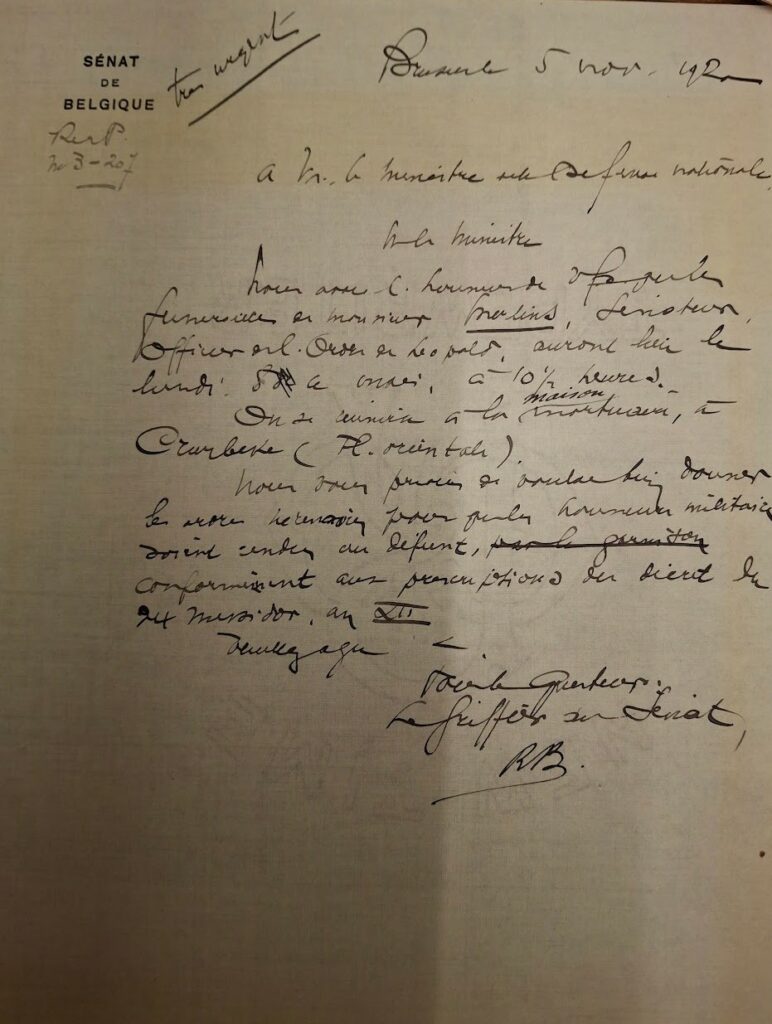 SÉNAT
DE
BELGIQUE
très urgent
Bruxelles 5 nov. 192
N° 3-207
A Mr. le Ministre de la Défense nationale,
Mr le Ministre
Nous avons l'honneur de que les
funérailles de monsieur, Sénateur,
Officier de l'Ordre de Léopold, auront lieu le
lundi 8 ct, à 10½ heures.
On se réunira à la maison mortuaire, à
Cruybeke (Fl. orientale).
Nous vous prions de vouloir bien donner
les ordres nécessaires pour que les honneurs militaires
soient rendus au défunt, par la garnison
conformément aux prescriptions du décret du
dix Messidor, an XII
Veuillez agréer
Pour les Questeurs:
Le Greffier du Sénat,
RB.